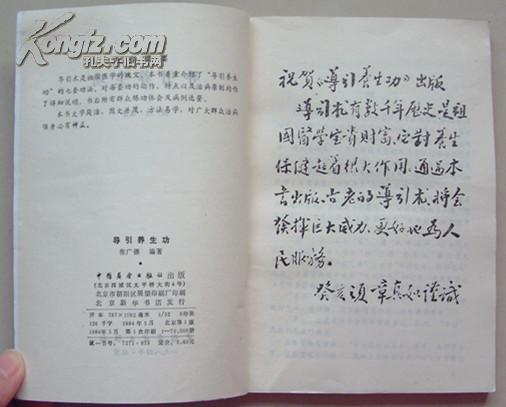 Kongfz.com
孔夫子旧书网
导引术是祖国医学的瑰宝，本书着重介绍了“导引养生
功”的七套功法，对各套功的动作、特点以及治病原则均作
了详细说明，书后附有群众练功体会及病例选登。
本书文字简洁，图文并茂，方法易学，对广大群众治病
强身必有裨益。
导引养生功
张广德 编著
出版
北京市朝阳区展望印刷厂印刷
北京新华书店发行
开本 787×1092毫米 1/32
1984年5月 北京第1版
1984年5月 第1次印刷
祝贺《导引养生功》出版
导引术有数千年历史是祖
国医学宝贵财富、它对养生
保健起着很大作用、通过本
书出版、古老的导引术、将会
发挥巨大威力、更好地为人
民服务。
癸亥